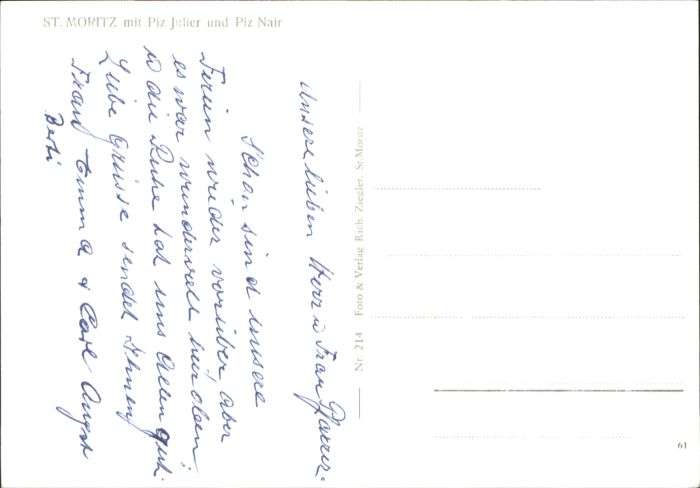 ST. MORITZ mit Piz Julier und Piz Nair
Unsere lieben Herr u Frau Pfarrer.
Schon sind unsere
Ferien wieder vorüber, aber
es war wundervoll hier oben,
u die Ruhe hat uns Allen gut.
Liebe Grüsse sendet Ihnen
Emma & Carl August
Nr. 214 Foto & Verlag Rud. Ziegler, St. Moritz
61